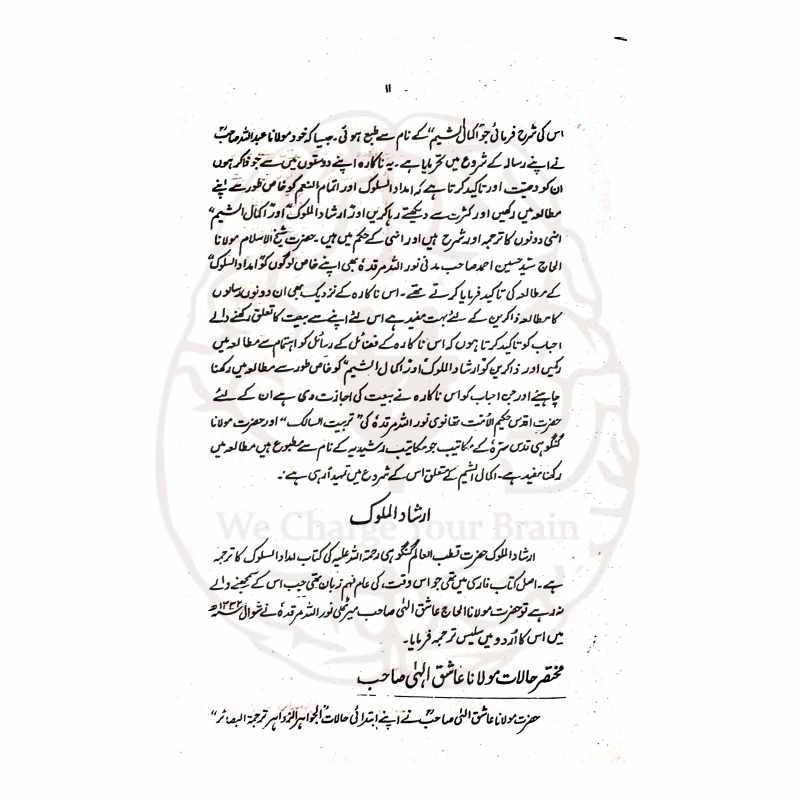 ۱۱
اس کی شرح فرمائی جو "اکمال الشیم" کے نام سے طبع ہوئی۔ جیسا کہ خود مولانا عبداللہ صاحبؒ
نے اپنے رسالہ کے شروع میں تحریر فرمایا ہے۔ یہ ناکارہ اپنے دوستوں میں سے جو ذاکر ہوں
ان کو وصیت اور تاکید کرتا ہے کہ امداد السلوک اور اتمام النعم کو خاص طور سے اپنے
مطالعہ میں رکھیں اور کثرت سے دیکھتے رہا کریں اور "ارشاد الملوک" اور "اکمال الشیم"
انہی دونوں کا ترجمہ اور شرح ہیں اور انہی کے حکم میں ہیں۔ حضرت شیخ الاسلام مولانا
الحاج سید حسین احمد صاحب مدنی نور اللہ مرقدہٗ بھی اپنے خاص لوگوں کو "امداد السلوک"
کے مطالعہ کی تاکید فرمایا کرتے تھے۔ اس ناکارہ کے نزدیک بھی ان دونوں رسالوں
کا مطالعہ ذاکرین کے لئے بہت مفید ہے اس لئے اپنے سے بیعت کا تعلق رکھنے والے
احباب کو تاکید کرتا ہوں کہ اس ناکارہ کے فضائل کے رسائل کو اہتمام سے مطالعہ میں
رکھیں اور ذاکرین کو "ارشاد الملوک" اور "اکمال الشیم" کو خاص طور سے مطالعہ میں رکھنا
چاہیئے اور جن احباب کو اس ناکارہ نے بیعت کی اجازت دی ہے ان کے لئے
حضرت اقدس حکیم الامت تھانوی نور اللہ مرقدہٗ کی "تربیت السالک" اور حضرت مولانا
گنگوہی قدس سرہٗ کے مکاتیب جو مکاتیب رشیدیہ کے نام سے مطبوع ہیں مطالعہ میں
رکھنا مفید ہے۔ اکمال الشیم کے متعلق اس کے شروع میں تمہید آرہی ہے۔
ارشاد الملوک
ارشاد الملوک حضرت قطب العالم گنگوہی رحمۃ اللہ علیہ کی کتاب امداد السلوک کا ترجمہ
ہے۔ اصل کتاب فارسی میں تھی جو اس وقت کی عام فہم زبان تھی جب اس کے سمجھنے والے
نہ رہے تو حضرت مولانا الحاج عاشق الٰہی صاحب میرٹھی نور اللہ مرقدہٗ نے شوال ۱۳۳۲ھ
میں اس کا اُردو میں سلیس ترجمہ فرمایا۔
مختصر حالات مولانا عاشق الٰہی صاحب
حضرت مولانا عاشق الٰہی صاحبؒ نے اپنے ابتدائی حالات "الجواہر الزواہر ترجمۃ البصائر"
We Charge Your Brain